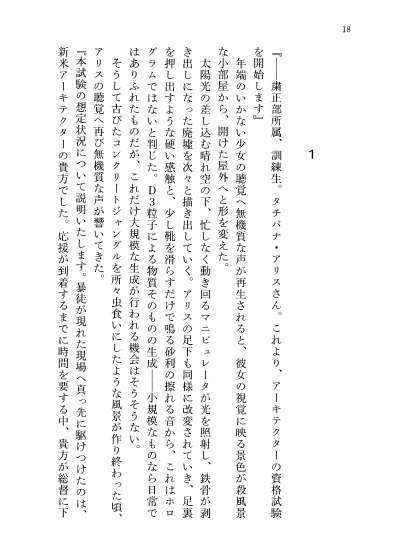 18
1
『――粛正部所属、訓練生。タチバナ・アリスさん。これより、アーキテクターの資格試験
を開始します』
　年端のいかない少女の聴覚へ無機質な声が再生されると、彼女の視覚に映る景色が殺風景
な小部屋から、開けた屋外へと形を変えた。
　太陽光の差し込む晴れ空の下、忙しなく動き回るマニピュレータが光を照射し、鉄骨が剥
き出しになった廃墟を次々と描き出していく。アリスの足下も同様に改変されていき、足裏
を押し出すような硬い感触と、少し靴を滑らすだけで鳴る砂利の擦れる音から、これはホロ
グラムではないと判じた。D3粒子による物質そのものの生成――小規模なものなら日常で
はありふれたものだが、これだけ大規模な生成が行われる機会はそうそうない。
　そうして古びたコンクリートジャングルを所々虫食いにしたような風景が作り終わった頃、
アリスの聴覚へ再び無機質な声が響いてきた。
『本試験の想定状況について説明いたします。暴徒が現れた現場へ真っ先に駆けつけたのは、
新米アーキテクターの貴方でした。応援が到着するまでに時間を要する中、貴方が総督に下